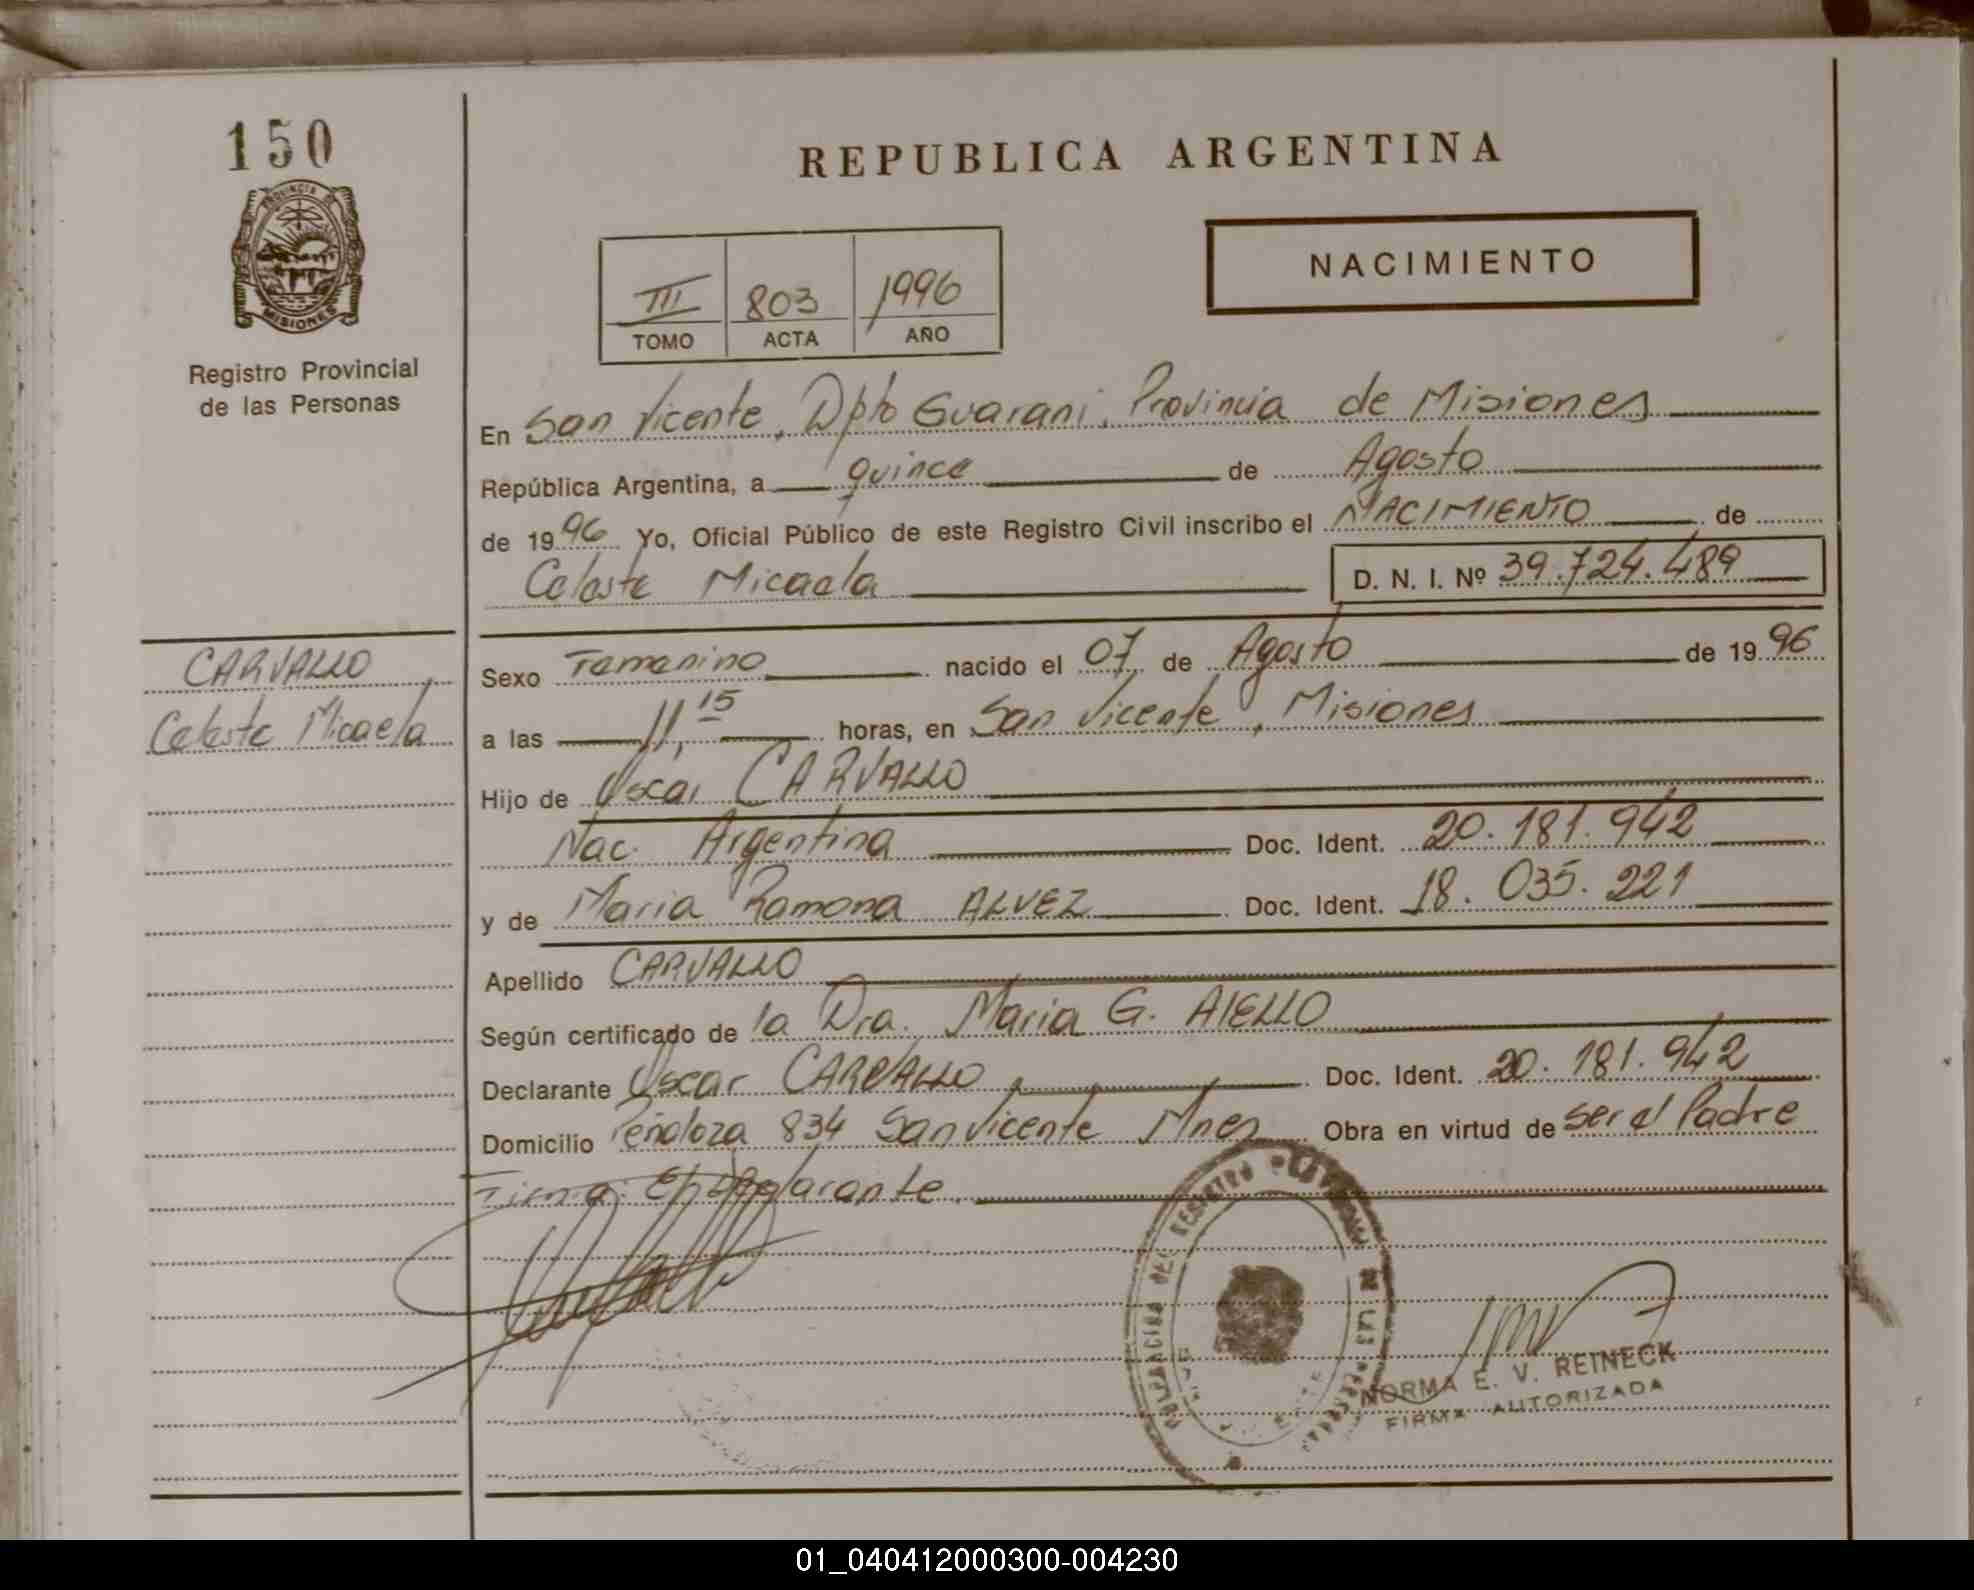 150
PROVINCIA DE
MISIONES
Registro Provincial
de las Personas
REPUBLICA ARGENTINA
NACIMIENTO
III 803 1996
TOMO ACTA AÑO
En San Vicente, Dpto Guarani, Provincia de Misiones
República Argentina, a quince de Agosto
de 1996 Yo, Oficial Público de este Registro Civil inscribo el NACIMIENTO de
Celeste Micaela D. N. I. Nº 39.724.489
CARVALLO
Celeste Micaela
Sexo Femenino nacido el 07 de Agosto de 1996
a las 11,15 horas, en San Vicente, Misiones
Hijo de Oscar CARVALLO
Nac. Argentina Doc. Ident. 20.181.942
y de Maria Ramona ALVEZ Doc. Ident. 18.035.221
Apellido CARVALLO
Según certificado de la Dra. Maria G. AIELLO
Declarante Oscar CARVALLO, Doc. Ident. 20.181.942
Domicilio 834 San Vicente Mnes Obra en virtud de ser el Padre
Firma el Declarante.
NORMA E. V. REINECK
FIRMA AUTORIZADA
01_040412000300-004230